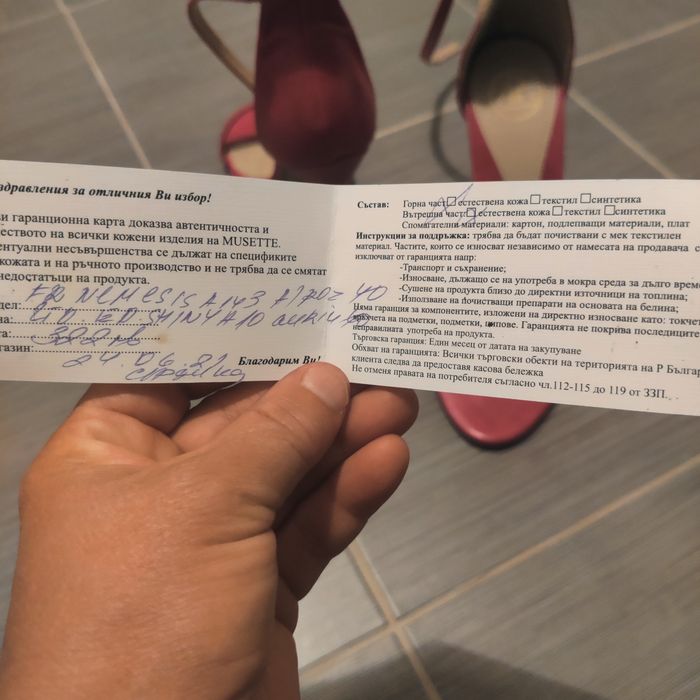 здравления за отличния Ви избор!
ви гаранционна карта доказва автентичността и
еството на всички кожени изделия на MUSETTE.
ентуални несъвършенства се дължат на спецификите
кожата и на ръчното производство и не трябва да се смятат
недостатъци на продукта.
NEMESIS A143 40
дел:
на:
та:
газин: 24.06.21
Благодарим Ви!
Състав: Горна част естествена кожа текстил синтетика
Вътрешна част естествена кожа текстил синтетика
Спомагателни материали: картон, подлепващи материали, плат
Инструкции за поддръжка: трябва да бъдат почиствани с мек текстилен
материал. Частите, които се износват независимо от намесата на продавача с
изключват от гаранцията напр:
-Транспорт и съхранение;
-Износване, дължащо се на употреба в мокра среда за дълго време
-Сушене на продукта близо до директни източници на топлина;
-Използване на почистващи препарати на основата на белина;
Няма гаранция за компонентите, изложени на директно износване като: токчет
връхчета на подметки, подметки, ципове. Гаранцията не покрива последиците
неправилната употреба на продукта.
Търговска гаранция: Един месец от датата на закупуване
Обхват на гаранцията: Всички търговски обекти на територията на Р Българ
клиента следва да предоставя касова бележка
Не отменя правата на потребителя съгласно чл.112-115 до 119 от ЗЗП.